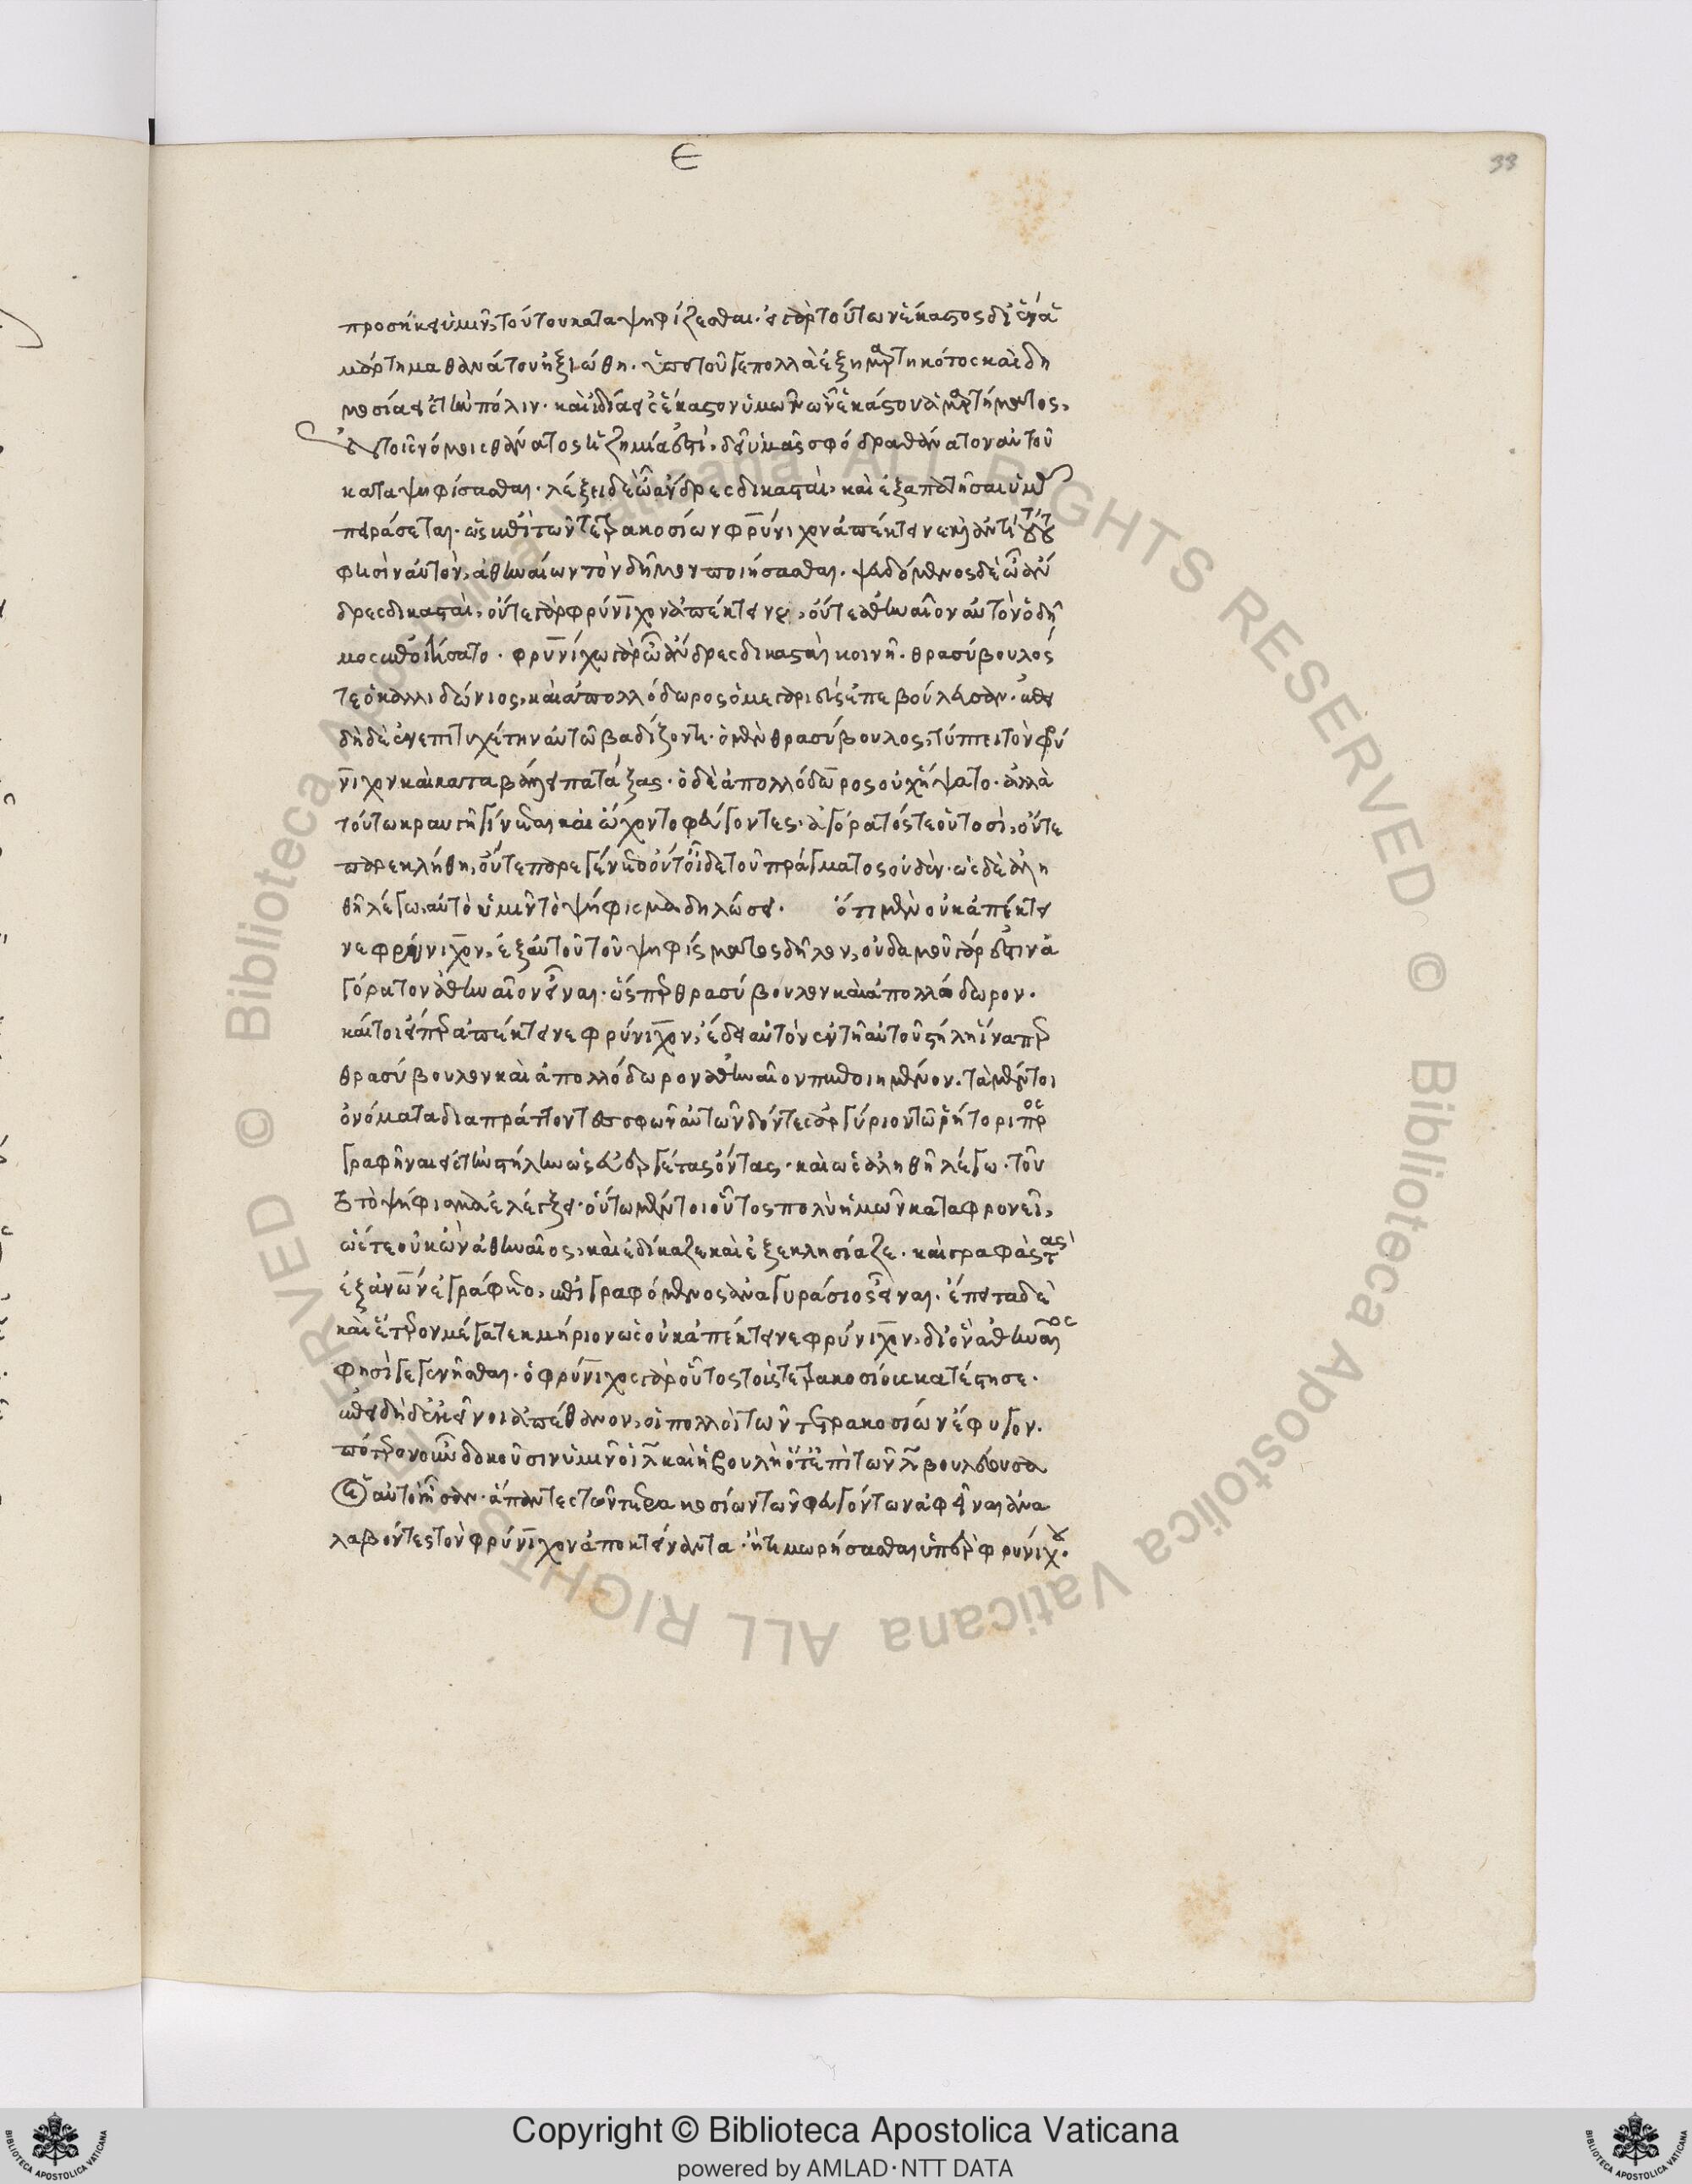 ε
33
προσήκει ὑμῖν τούτου καταψηφίζεσθαι· εἰ γὰρ τούτων ἕκαστος δι' ἓν ἁ
μάρτημα θανάτου ἠξιώθη· ὑπὸ τοῦ γε πολλὰ ἐξημαρτηκότος καὶ δη
μοσία εἰς τὴν πόλιν· καὶ ἰδία εἰς ἕκαστον ὑμῶν ὧν ἑκάστου ἁμαρτήματος,
ἐν τοῖς νόμοις θάνατος ἡ ζημία ἐστὶ, δεῖ ὑμᾶς σφόδρα θάνατον αὐτοῦ
καταψηφίσασθαι· λέξει δὲ ὦ ἄνδρες δικασταὶ, καὶ ἐξαπατῆσαι ὑμᾶς
πειράσεται· ὡς ἐπὶ τῶν τετρακοσίων φρύνιχον ἀπέκτεινε καὶ ἀντὶ τούτου
φησὶν αὐτὸν, ἀθηναίων τὸν δῆμον ποιήσασθαι· ψευδόμενος δὲ ὦ ἄν
δρες δικασταὶ, οὔτε γὰρ φρύνιχον ἀπέκτεινε, οὔτε ἀθηναῖον αὐτὸν ὁ δῆ
μος ἐποιήσατο· φρυνίχω γὰρ ὦ ἄνδρες δικασταὶ κοινῆ· θρασύβουλός
τε ὁ καλλιδώνιος, καὶ ἀπολλόδωρος ὁ μεγαρεὺς ἐπεβούλευσαν· ἐπει
δὴ δὲ ἐνεπιτυχέτην αὐτῶ βαδίζοντι· ὁ μὲν θρασύβουλος, τύπτει τὸν φρύ
νιχον καὶ καταβάλλει πατάξας· ὁ δὲ ἀπολλόδωρος οὐχ ἥψατο· ἀλλὰ
τούτω κραυγὴ γίνεται καὶ ὤχοντο φεύγοντες· ἀγόρατός τε οὑτοσὶ, οὔτε
παρεκλήθη, οὔτε παρεγένετο οὔτ' οἶδε τοῦ πράγματος οὐδέν· ὡς δὲ ἀλη
θῆ λέγω, αὐτὸ ὑμῖν τὸ ψήφισμα δηλώσει· ὅτι μὲν οὐκ ἀπέκτει
νε φρύνιχον, ἐξ αὐτοῦ τοῦ ψηφίσματος δῆλον, οὐδαμοῦ γάρ ἐστιν ἀ
γόρατον ἀθηναῖον εἶναι· ὥσπερ θρασύβουλον καὶ ἀπολλόδωρον·
καίτοι εἴπερ ἀπέκτεινε φρύνιχον, ἔδει αὐτὸν ἐν τῆ αὐτοῦ στήλη ἵναπερ
θρασύβουλον καὶ ἀπολλόδωρον ἀθηναῖον πεποιημένον· τὰ μέντοι
ὀνόματα διαπράττονται σφῶν αὐτῶν δόντες ἀργύριον τῶ ῥήτορι προσ
γραφῆναι εἰς τὴν στήλην ὡς εὐεργέτας ὄντας· καὶ ὡς ἀληθῆ λέγω· τοῦ
το τὸ ψήφισμα ἐλέγξει· οὕτω μέντοι οὗτος πολὺ ἡμῶν καταφρονεῖ,
ὥστε οὐκ ὢν ἀθηναῖος, καὶ ἐδίκαζε καὶ ἐξεκλησίαζε· καὶ γραφὰς τὰς
ἐξ ἀνῶν ἐγράφετο, ἐπιγραφόμενος ἀναγυράσιος εἶναι· ἔπειτα δὲ
καὶ ἕτερον μέγα τεκμήριον ὡς οὐκ ἀπέκτεινε φρύνιχον, δι' ὃ ἀθηναῖος
φησὶ γεγενῆσθαι· ὁ φρύνιχος γὰρ οὗτος τοὺς τετρακοσίους κατέστησε·
ἐπειδὴ δ' ἐκεῖνοι ἀπέθανον, οἱ πολλοὶ τῶν τετρακοσίων ἔφυγον·
πότερον οὖν δοκοῦσιν ὑμῖν οἱ λ καὶ ἡ βουλὴ ὅτε ἐπὶ τῶν λ βουλεύουσα
οἳ αὐτοὶ ἦσαν· ἅπαντες τῶν τετρακοσίων τῶν φευγόντων ἀφεῖναι ἀνα
λαβόντες τὸν φρύνιχον ἀποκτείναντα· ἢ τιμωρήσασθαι ὑπὲρ φρυνίχου·